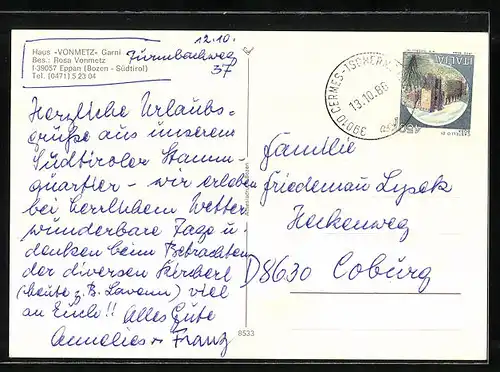 12.10.
Haus «VONMETZ» Garni
Bes.: Rosa Vonmetz
I-39057 Eppan (Bozen - Südtirol)
Tel. (0471) 5 23 04
37
Herzliche Urlaubs-
grüße aus unserem
Südtiroler Stamm-
quartier - wir erleben
bei herrlichem Wetter
wunderbare Tage u.
denken beim Betrachten
der diversen
(heute z.B. ) viel
an Euch!! Alles Gute
Annelies + Franz
8533
39010 CERMES-TSCHERMS
13.10.86
ITALIA
450
Familie
Friedemann
Heckenweg
D8630 Coburg